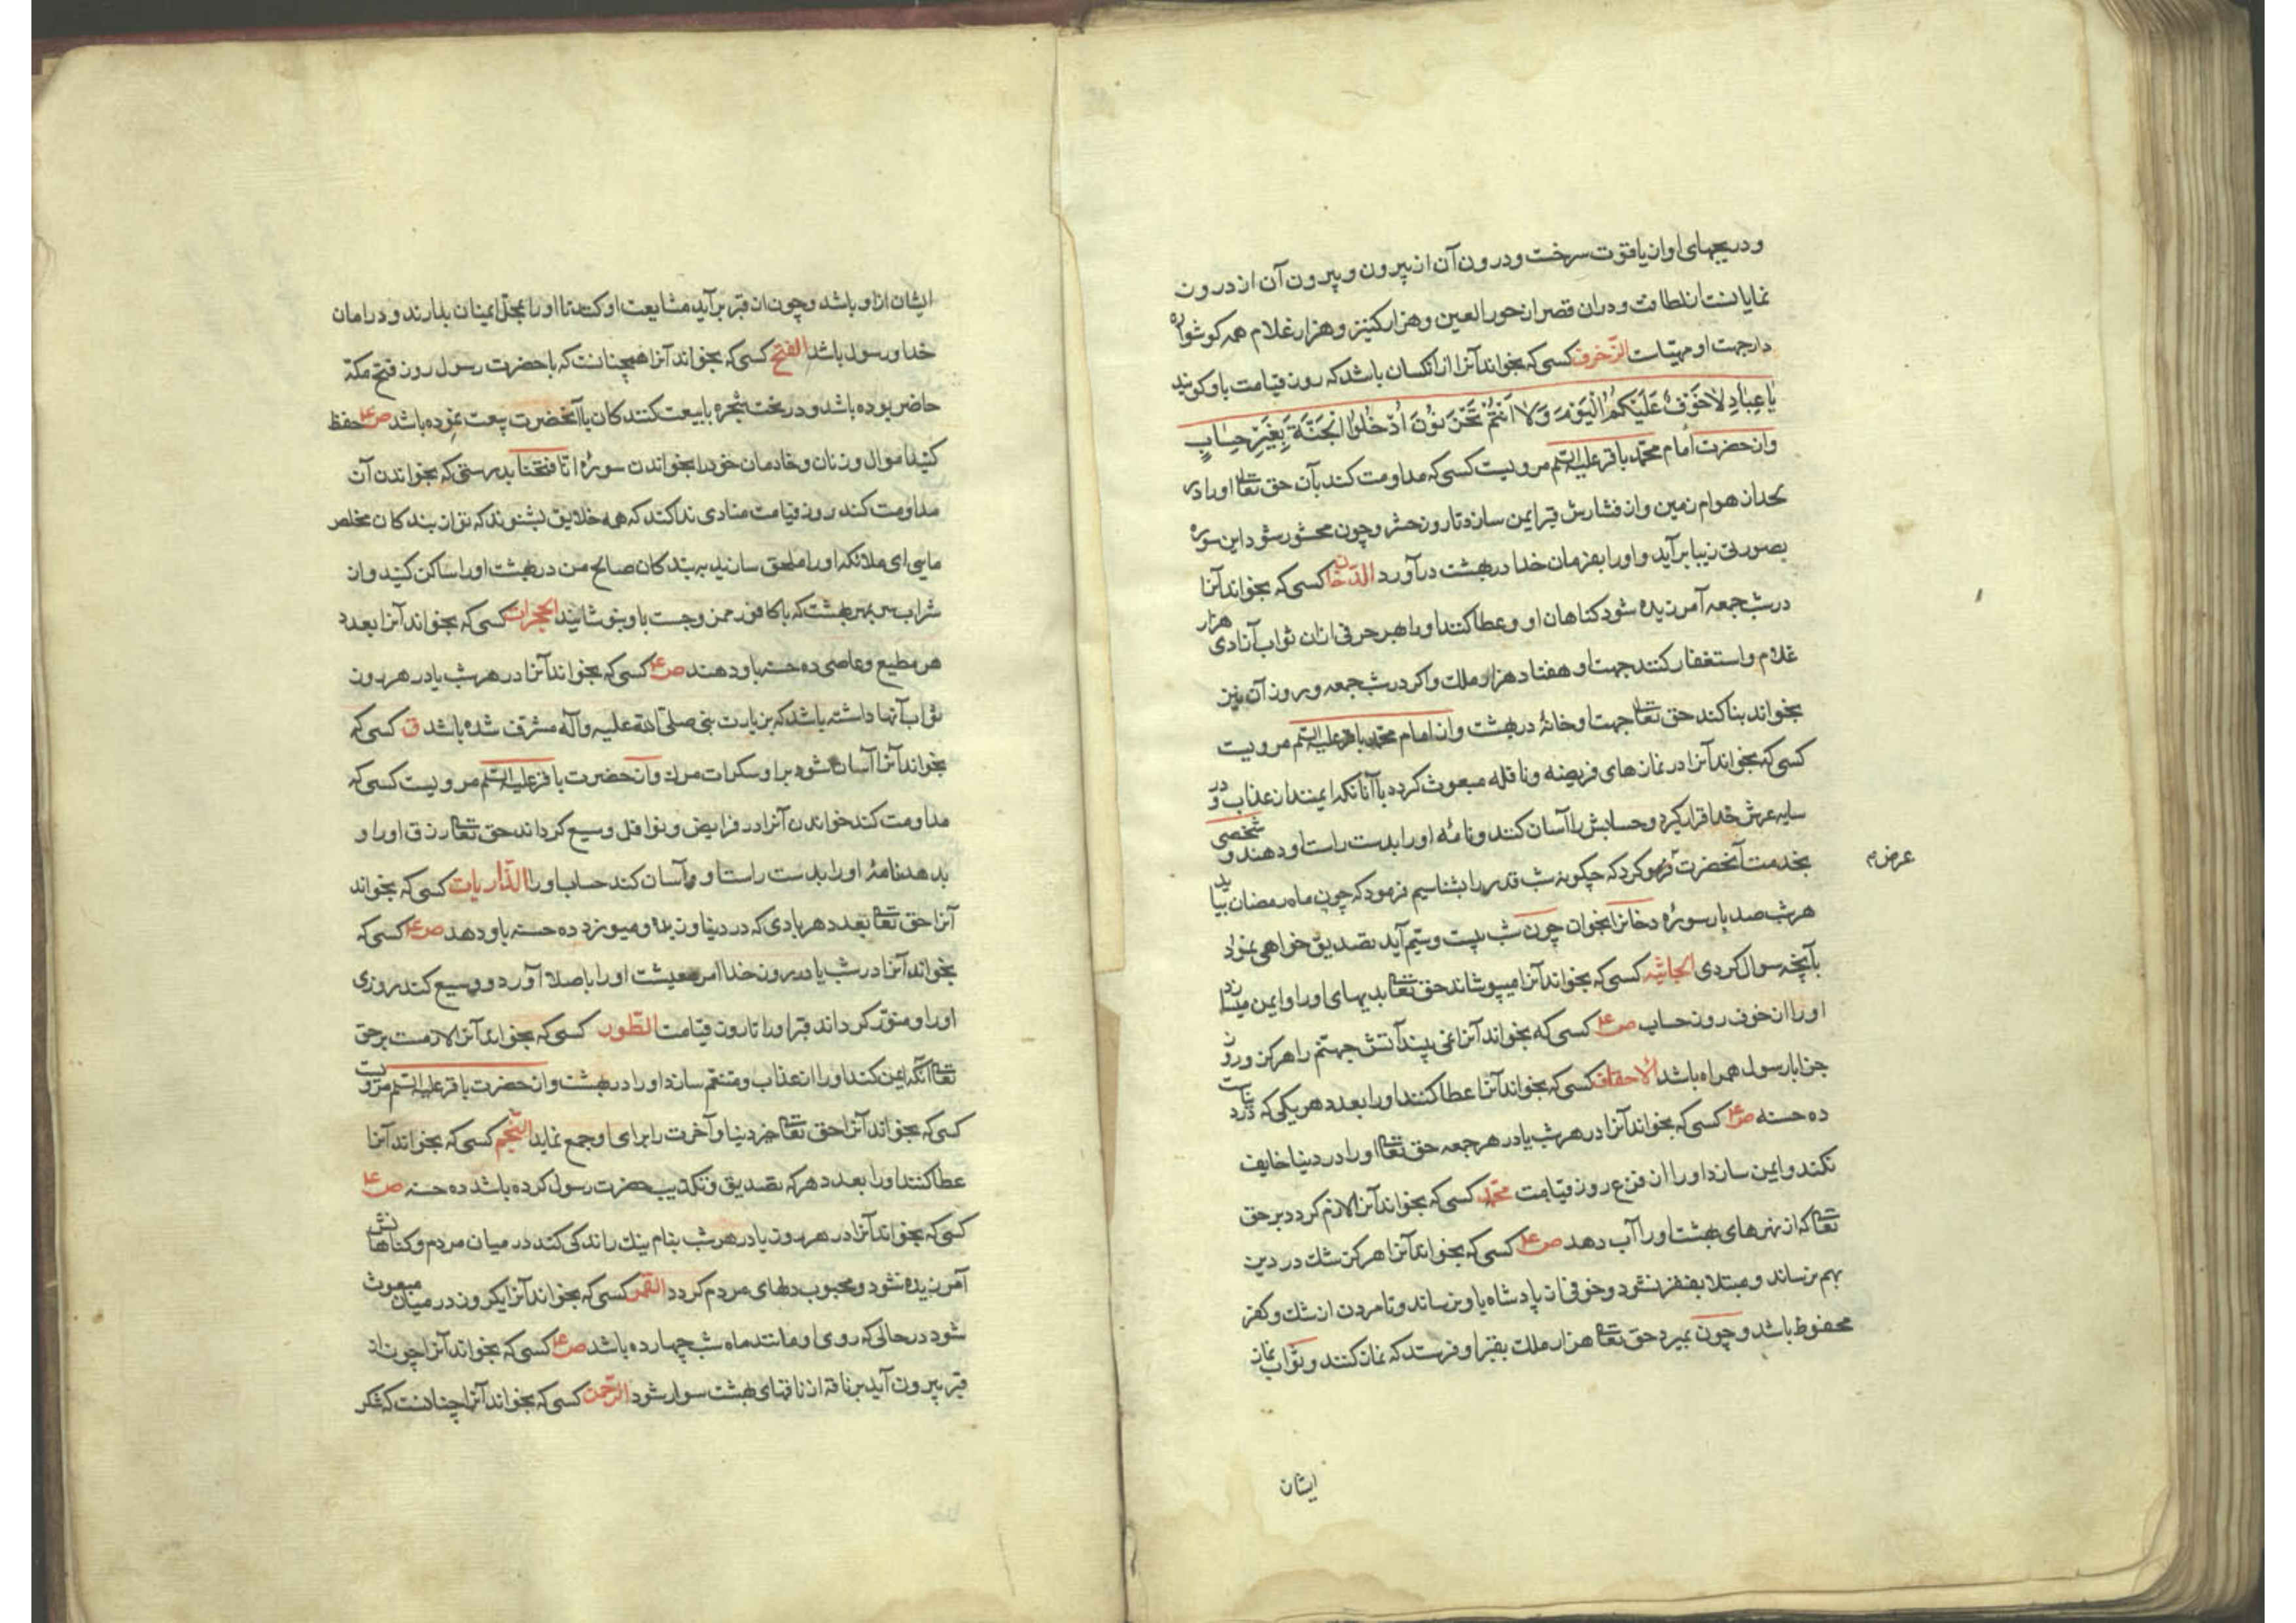 ودریچهای او از یاقوت سرخست ودرون آن از بیرون وبیرون آن از درون
نمایانست از لطافت ودران قصر از حور العین وهزار کنیز وهزار غلام همه کوشواره
دار جهت او مهیّاست الزّخرف کسی که بخواند آنرا از انکسان باشد که روز قیامت باو کویند
یا عِبادِ لا خَوْفٌ عَلَیْکُمُ الْیَوْمَ وَلا اَنْتُمْ تَحْزَنُونَ اُدْخُلُوا الْجَنَّةَ بِغَیْرِ حِسابٍ
واز حضرت امام محمّد باقر علیه السّلم مرویست کسی که مداومت کند بآن حق تعالی او را در
لحد از هوام زمین واز فشارش قبر ایمن سازد تا روز حشر وچون محشور شود این سوره
بصورتی زیبا برآید واو را بفرمان خدا در بهشت درآورد الدّخان کسی که بخواند آنرا
در شب جمعه آمرزیده شود کناهان او وعطا کنند او را بهر حرفی ازان ثواب آزادی هزار
غلام واستغفار کنند جهت او هفتاد هزار ملک واکر در شب جمعه وروز آن نیز
بخواند بنا کند حق تعالی جهت او خانهٔ در بهشت واز امام محمّد باقر علیه السّلم مرویست
کسی که بخواند آنرا در نمازهای فریضه ونافله مبعوث کردد باآنانکه ایمنند از عذاب ودر
سایه عرش خدا قرار کیرد وحسابش را آسان کنند ونامه او را بدست راست او دهند وشخصی
بخدمت آنحضرت کرد که چکونه شب قدر را بشناسیم فرمود که چون ماه رمضان بیاید
عرض م
هر شب صد بار سورهٔ دخانرا بخوان چون شب بیست وسیّم آید تصدیق خواهی نمود
بآنچه سوال کردی الجاثیه کسی که بخواند آنرا میپوشاند حق تعالی بدیهای او را وایمن میسازد
او را از خوف روز حساب ص ع کسی که بخواند آنرا نمی بیند آتش جهنّم را هرکز ورو ز
جزا با رسول همراه باشد الاحقاف کسی که بخواند آنرا عطا کنند او را بعدد هر یکی که در دنیاست
ده حسنه ص ع کسی که بخواند آنرا در هر شب یا در هر جمعه حق تعالی او را در دنیا خایف
نکند وایمن سازد او را از فزع روز قیامت محمّد کسی که بخواند آنرا لازم کردد بر حق
تعالی که از نهرهای بهشت او را آب دهد ص ع کسی که بخواند آنرا هرکز شک در دین
بهم نرساند ومبتلا بفقر نشود وخوفی از پادشاه باو نرساند وتا مردن از شک وکفر
محفوظ باشد وچون بمیرد حق تعالی هزار ملک بقبر او فرستد که نماز کنند وثواب نماز
ایشان
ایشان ازاو باشد وچون از قبر برآید مشایعت او کنند تا او را بمحلّ ایمنان بدارند ودر امان
خدا ورسول باشد الفتح کسی که بخواند آنرا همچنانست که با حضرت رسول روز فتح مکّه
حاضر بوده باشد ودر تحت شجره با بیعت کنندکان باآنحضرت بیعت نموده باشد ص ع حفظ
کنید اموال وزنان وخادمان خود را بخواندن سورهٔ انّا فتحنا بدرستی که بخواندن آن
مداومت کند روز قیامت منادی ندا کند که همه خلایق بشنوند که تو از بندکان مخلص
مایی ای ملائکه او را ملحق سازید ببندکان صالح من در بهشت او را ساکن کنید واز
شراب سر بمهر بهشت که با کافور ممزوجست باو بنوشانید الحجرات کسی که بخواند آنرا بعدد
هر مطیع وعاصی ده حسنه باو دهند ص ع کسی که بخواند آنرا در هر شب یا در هر روز
ثواب آنها داشته باشد که بزیارت نبی صلی الله علیه وآله مشرّف شده باشد ق کسی که
بخواند آنرا آسان شود بر او سکرات مرک واز حضرت باقر علیه السّلم مرویست کسی که
مداومت کند خواندن آنرا در فرایض ونوافل وسیع کرداند حق تعالی رزق او را و
بدهد نامهٔ او را بدست راست او وآسان کند حساب او را الذّاریات کسی که بخواند
آنرا حق تعالی بعدد هر بادی که در دنیا وزیده ومیوزد ده حسنه باو دهد ص ع کسی که
بخواند آنرا در شب یا در روز خدا امر معیشت او را باصلاح آورد ووسیع کند روزی
او را ومنوّر کرداند قبر او را تا روز قیامت الطّور کسی که بخواند آنرا لازمست بر حق
تعالی آنکه ایمن کند او را از عذاب ومتنعّم سازد او را در بهشت واز حضرت باقر علیه السّلم مرویست
کسی که بخواند آنرا حق تعالی خیر دنیا وآخرت را برای او جمع نماید النّجم کسی که بخواند آنرا
عطا کنند او را بعدد هر که تصدیق وتکذیب حضرت رسول کرده باشد ده حسنه ص ع
کسی که بخواند آنرا در هر روز یا در هر شب بنام نیک زاندکی کند در میان مردم وکناهانش
آمرزیده شود ومحبوب دلهای مردم کردد القمر کسی که بخواند آنرا یکروز در میان مبعوث
شود در حالی که روی او مانند ماه شب چهارده باشد ص ع کسی که بخواند آنرا چون از
قبر بیرون آید بر ناقه از ناقهای بهشت سوار شود الرّحمن کسی که بخواند آنرا چنانست که شکر